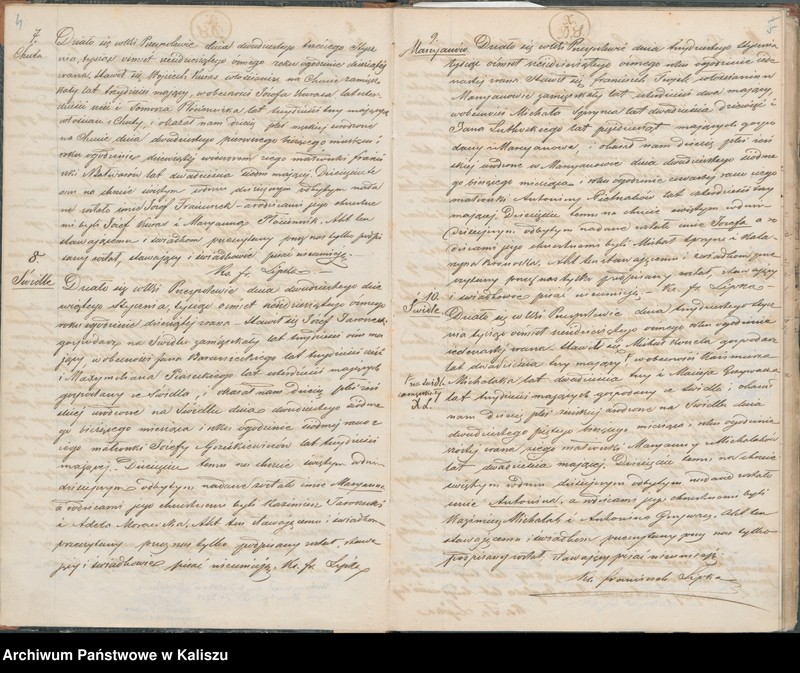 4
7.
Chuta
Działo się w Wsi Przespolewie dnia dwudziestego trzeciego Stycz
nia, tysiąc ośmset sześćdziesiątego ósmego roku o godzinie dziesiątej
z rana, Stawił się Wojciech Kuras włościanin na Chucie zamiesz
kały lat trzydzieści mający, w obecności Józefa Kurasa lat
i Tomasza lat trzydzieści trzy mających
włościan z Chuty, i okazał nam dziecię płci męzkiej urodzone
na Chucie dnia dwudziestego pierwszego bieżącego miesiąca i
roku o godzinie dziewiątej wieczorem z jego małżonki Franci
szki lat dwadzieścia siedm mającej. Dziecięciu te
mu na chrzcie świętym w dniu dzisiejszym odbytym nada
ne zostało imię Józef Franciszek a rodzicami jego chrzestne
mi byli Józef Kuras i Maryanna Płóciennik. Akt ten
stawającemu i świadkom przeczytany przez nas tylko podpi
sany został, stawający i świadkowie pisać nieumieją.
Ks. fr. Lipka
8.
Świdle
Działo się w Wsi Przespolewie dnia dwudziestego dzie
wiątego Stycznia, tysiąc ośmset sześćdziesiątego ósmego
roku o godzinie dziesiątej z rana Stawił się Józef Jaroszewski
gospodarz na Świdlu zamieszkały lat trzydzieści ośm ma
jący w obecności Jana lat trzydzieści sześć
i Maxymiliana Piaseckiego lat czterdzieści mających
gospodarzy ze Świdla, i okazał nam dziecię płci żeń
skiej urodzone na Świdlu dnia dwudziestego siódme
go bieżącego miesiąca i roku o godzinie siódmej rano z
jego małżonki Józefy lat trzydzieści
mającej. Dziecięciu temu na chrzcie świętym w dniu
dzisiejszym odbytym nadane zostało imię Maryanna
a rodzicami jego chrzestnemi byli Kazimierz Jaroszewski
i Adela Morawska, Akt ten stawającemu i świadkom
przeczytany przez nas tylko podpisany został, stawa
jący i świadkowie pisać nieumieją. Ks. fr. Lipka
5
9.
Maryjanów
Działo się w Wsi Przespolewie dnia trzydziestego Stycznia
tysiąc ośmset sześćdziesiątego ósmego roku o godzinie jede
nastej z rana Stawił się Franciszek włościanin w
Maryanowie zamieszkały lat czterdzieści dwa mający,
w obecności Michała lat dwadzieścia dziewięć i
Jana lat pięćdziesiąt mających gospo
darzy z Maryanowa, i okazał nam dziecię płci żeń
skiej urodzone w Maryanowie dnia dwudziestego siódme
go bieżącego miesiąca i roku o godzinie czwartej rano z jego
małżonki Antoniny lat czterdzieści trzy
mającej. Dziecięciu temu na chrzcie świętym w dniu
dzisiejszym odbytym nadane zostało imię Józefa a ro
dzicami jej chrzestnemi byli Michał i Kata
rzyna Akt ten stawającemu i świadkom prze
czytany przez nas tylko podpisany został, stawający
i świadkowie pisać nieumieją. Ks. fr. Lipka
10.
Świdle
Działo się w Wsi Przespolewie dnia trzydziestego Stycz
nia tysiąc ośmset sześćdziesiątego ósmego roku o godzinie
jedenastej z rana Stawił się Michał gospodarz
lat dwadzieścia trzy mający w obecności Kazimierza
na Świdlu
zamieszkały
X. L.
Michalaka lat dwadzieścia trzy i Macieja
lat trzydzieści mających gospodarzy ze Świdli i okazał
nam dziecię płci żeńskiej urodzone na Świdlu dnia
dwudziestego piątego bieżącego miesiąca i roku o godzinie
szóstej z rana, z jego małżonki Maryanny z Michalaków
lat dwadzieścia mającej. Dziecięciu temu na chrzcie
świętym w dniu dzisiejszym odbytym nadane zostało
imię Antonina, a rodzicami jej chrzestnemi byli
Kazimierz Michalak i Antonina Akt ten
stawającemu i świadkom przeczytany przez nas tylko
podpisany został. Stawający pisać nieumieją
Ks. Franciszek Lipka
Archiwum Państwowe w Kaliszu